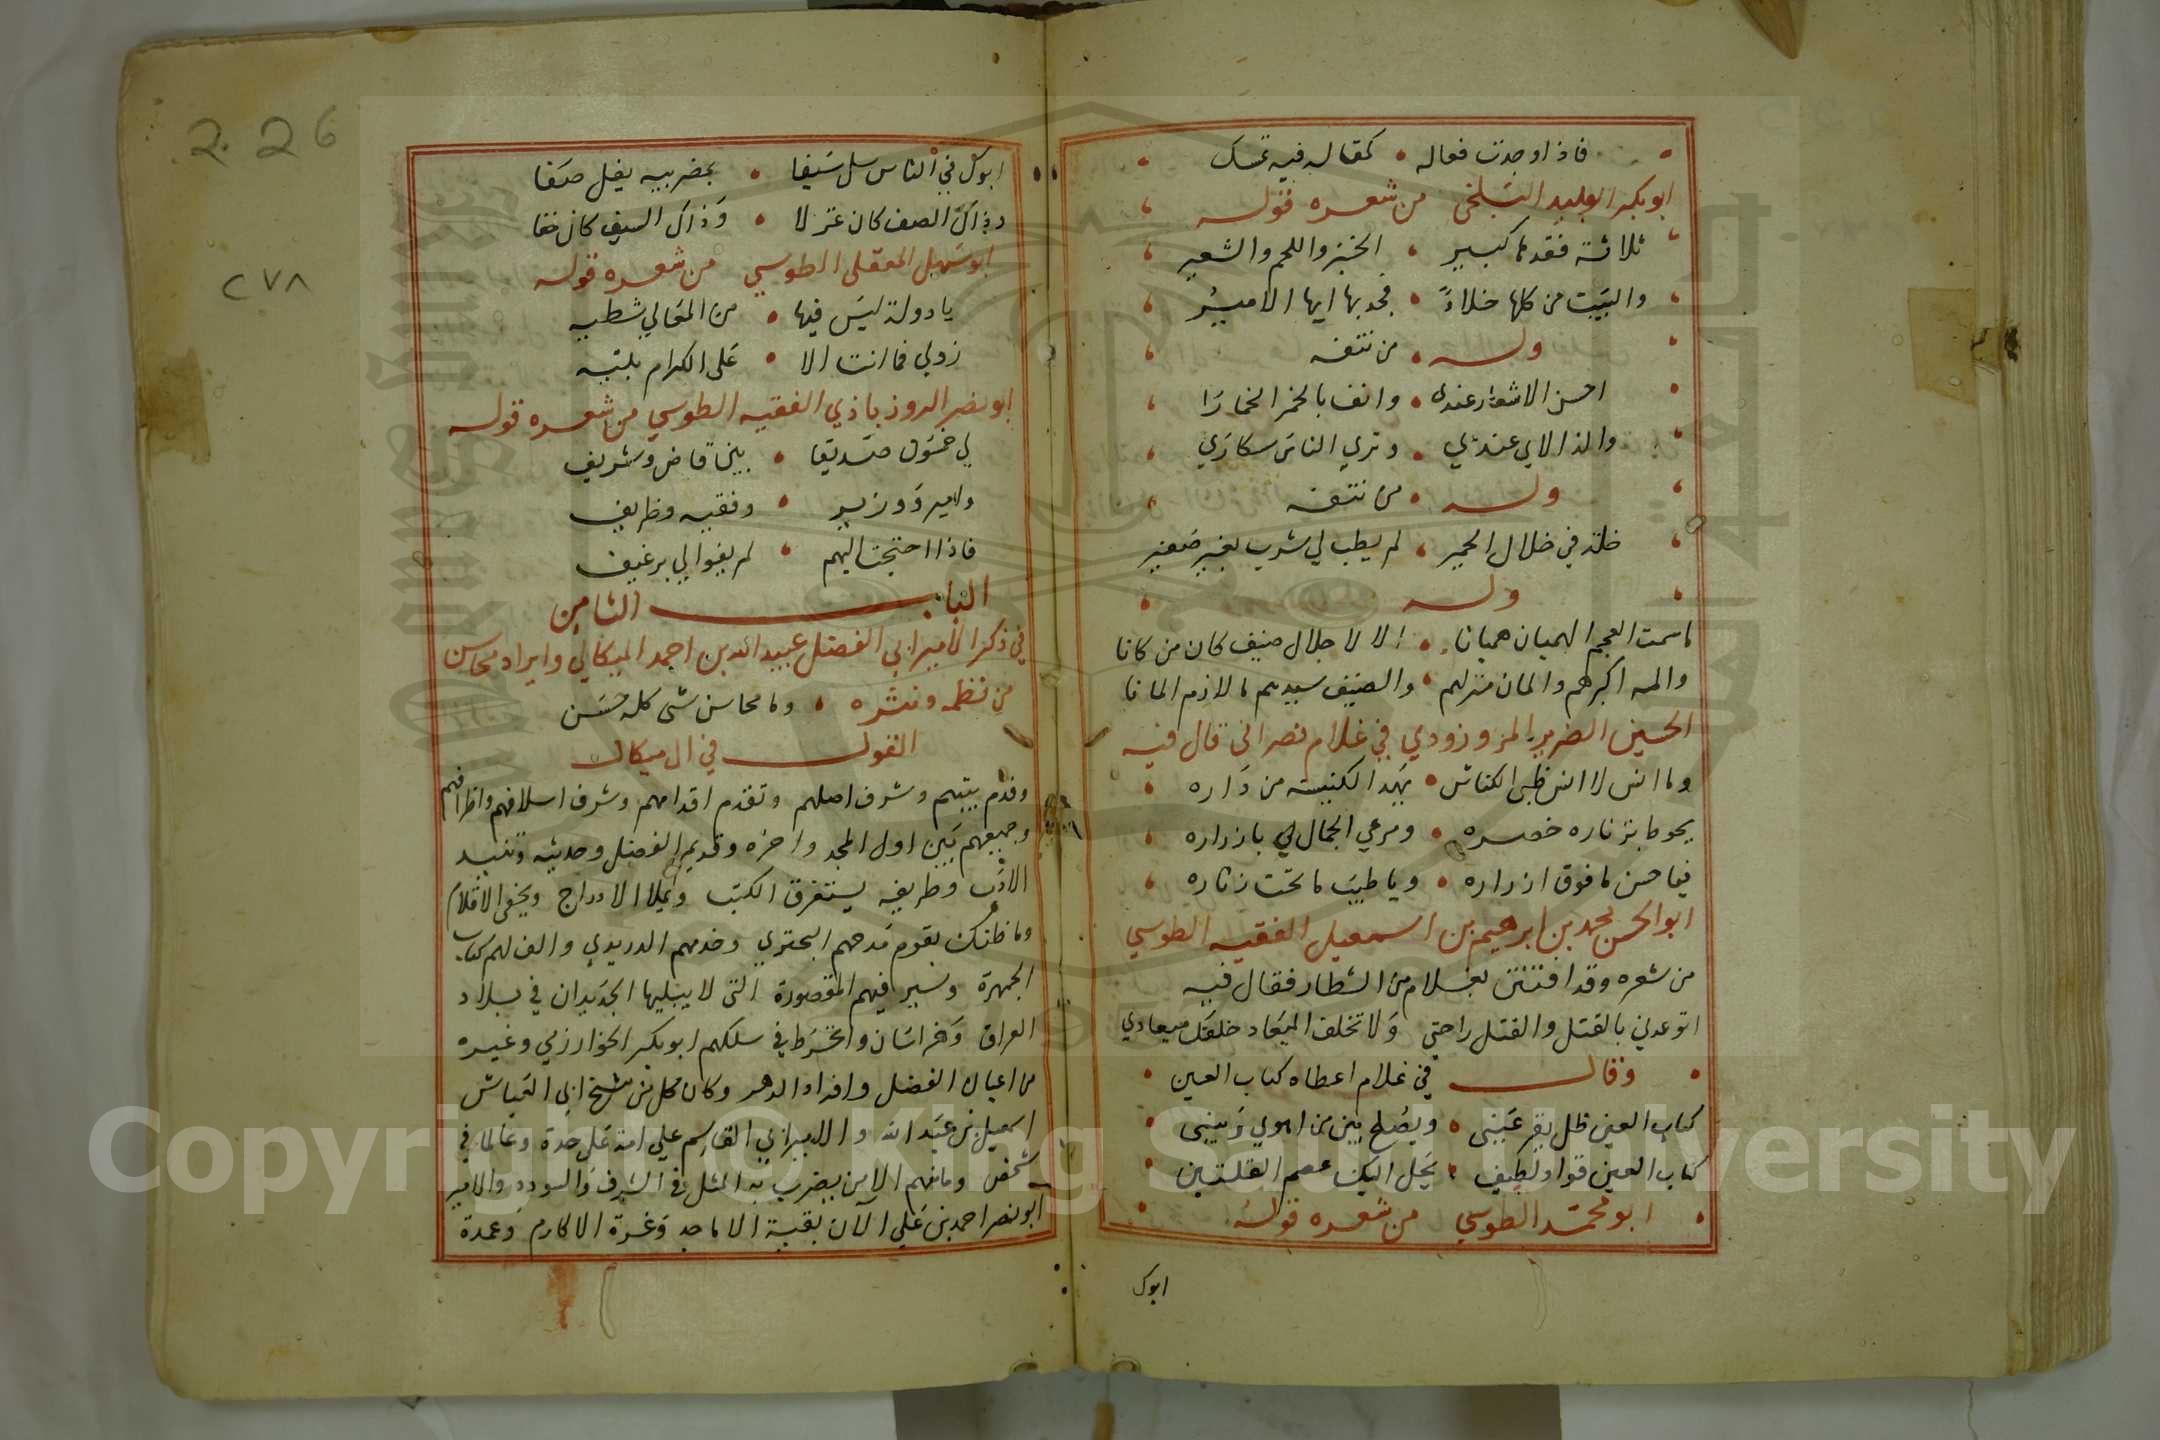 فاذا وجدت فعاله • كمقاله فيه تمسك
ابو بكر الوليد البلخى من شعره قوله
ثلاثة فقدها كبير • الخبز واللحم والشعير
والبيت من كلها خلاء • فجد بها ايها الامير
وله • من نتفه
احسن الاشعار عندى • وانف بالخمر الخمارا
والذ الاي عندي • وتري الناس سكاري
وله • من نتفه
خلتد في خلال الحمير • لم يطب لي شرب بغير صغير
وله
ما سمت العجم المهمان مهمانا • الا لاجلال ضيف كان من كانا
والمه اكبرهم والمان منزلهم • والضيف سيدهم ما لازم المانا
الحسين الضرير المروزودي في غلام نصرانى قال فيه
وما انس لا انس ظبى الكناس • يهد الكنيسة من داره
يحوط بزناره خصره • ومرعي الجمال لي بازراره
فيا حسن ما فوق ازراره • ويا طيب ما تحت زناره
ابو الحسن محمد بن ابرهيم بن اسمعيل الفقيه الطوسي
من شعره وقد افتتن بغلام من الشطار فقال فيه
اتوعدني بالقتل والقتل راحتي ولا تخلف الميعاد خلفك ميعادي
وقال في غلام اعطاه كتاب العين
كتاب العين ظل بقر عينى • ويصلح بين من اهوي وبينى
كتاب العين قواد لطيف • يحل اليك عصم القلتين
ابو محمد الطوسي من شعره قوله
ابوك
ابوك في الناس سل سيفا • بضربيه يفل صفا
وذاك الصف كان غزلا • وذاك السيف كان خفا
ابو سهل المعقلى الطوسي من شعره قوله
يا دولة ليس فيها • من المعالي شطيه
زولي فما انت الا • على الكرام بليه
ابو نصر الروذباذي الفقيه الطوسي من شعره قوله
لي خمسون صديقا • بين قاض وشريف
وامير ووزير • وفقيه وظريف
فاذا احتجت اليهم • لم يفوا لي برغيف
الباب الثامن
في ذكر الامير ابي الفضل عبيد الله بن احمد الميكالي وايراد محاسن
من نظمه ونثره • وما محاسن شى كله حسن
القول في ال ميكال
وقدم بيتهم وشرف اصلهم وتقدم اقدامهم وشرف اسلافهم واطرافهم
وجمعهم بين اول المجد واخره وقديم الفضل وحديثه وتليد
الادب وظريفه يستغرق الكتب ويملا الادراج ويحفى الاقلام
وما ظنك بقوم مدحهم البحتري وخدمهم الدريدي والف لهم كتاب
الجمهرة وسير فيهم المقصورة التى لا يبليها الجديدان في بلاد
العراق وخراسان وانخرط في سلكهم ابو بكر الخوارزمي وغيره
من اعيان الفضل وافراد الدهر وكان كل من شيخ ابى العباس
اسمعيل بن عبد الله والامير ابي القاسم علي امة على حدة وعالما في
شخص وما فيهم الا من يضرب به المثل في الشرف والسودد والامير
ابو نصر احمد بن علي الآن بقية الاماجد وغرة الاكارم وعمدة
2.26
٢٧٨
Copyright © King Saud University